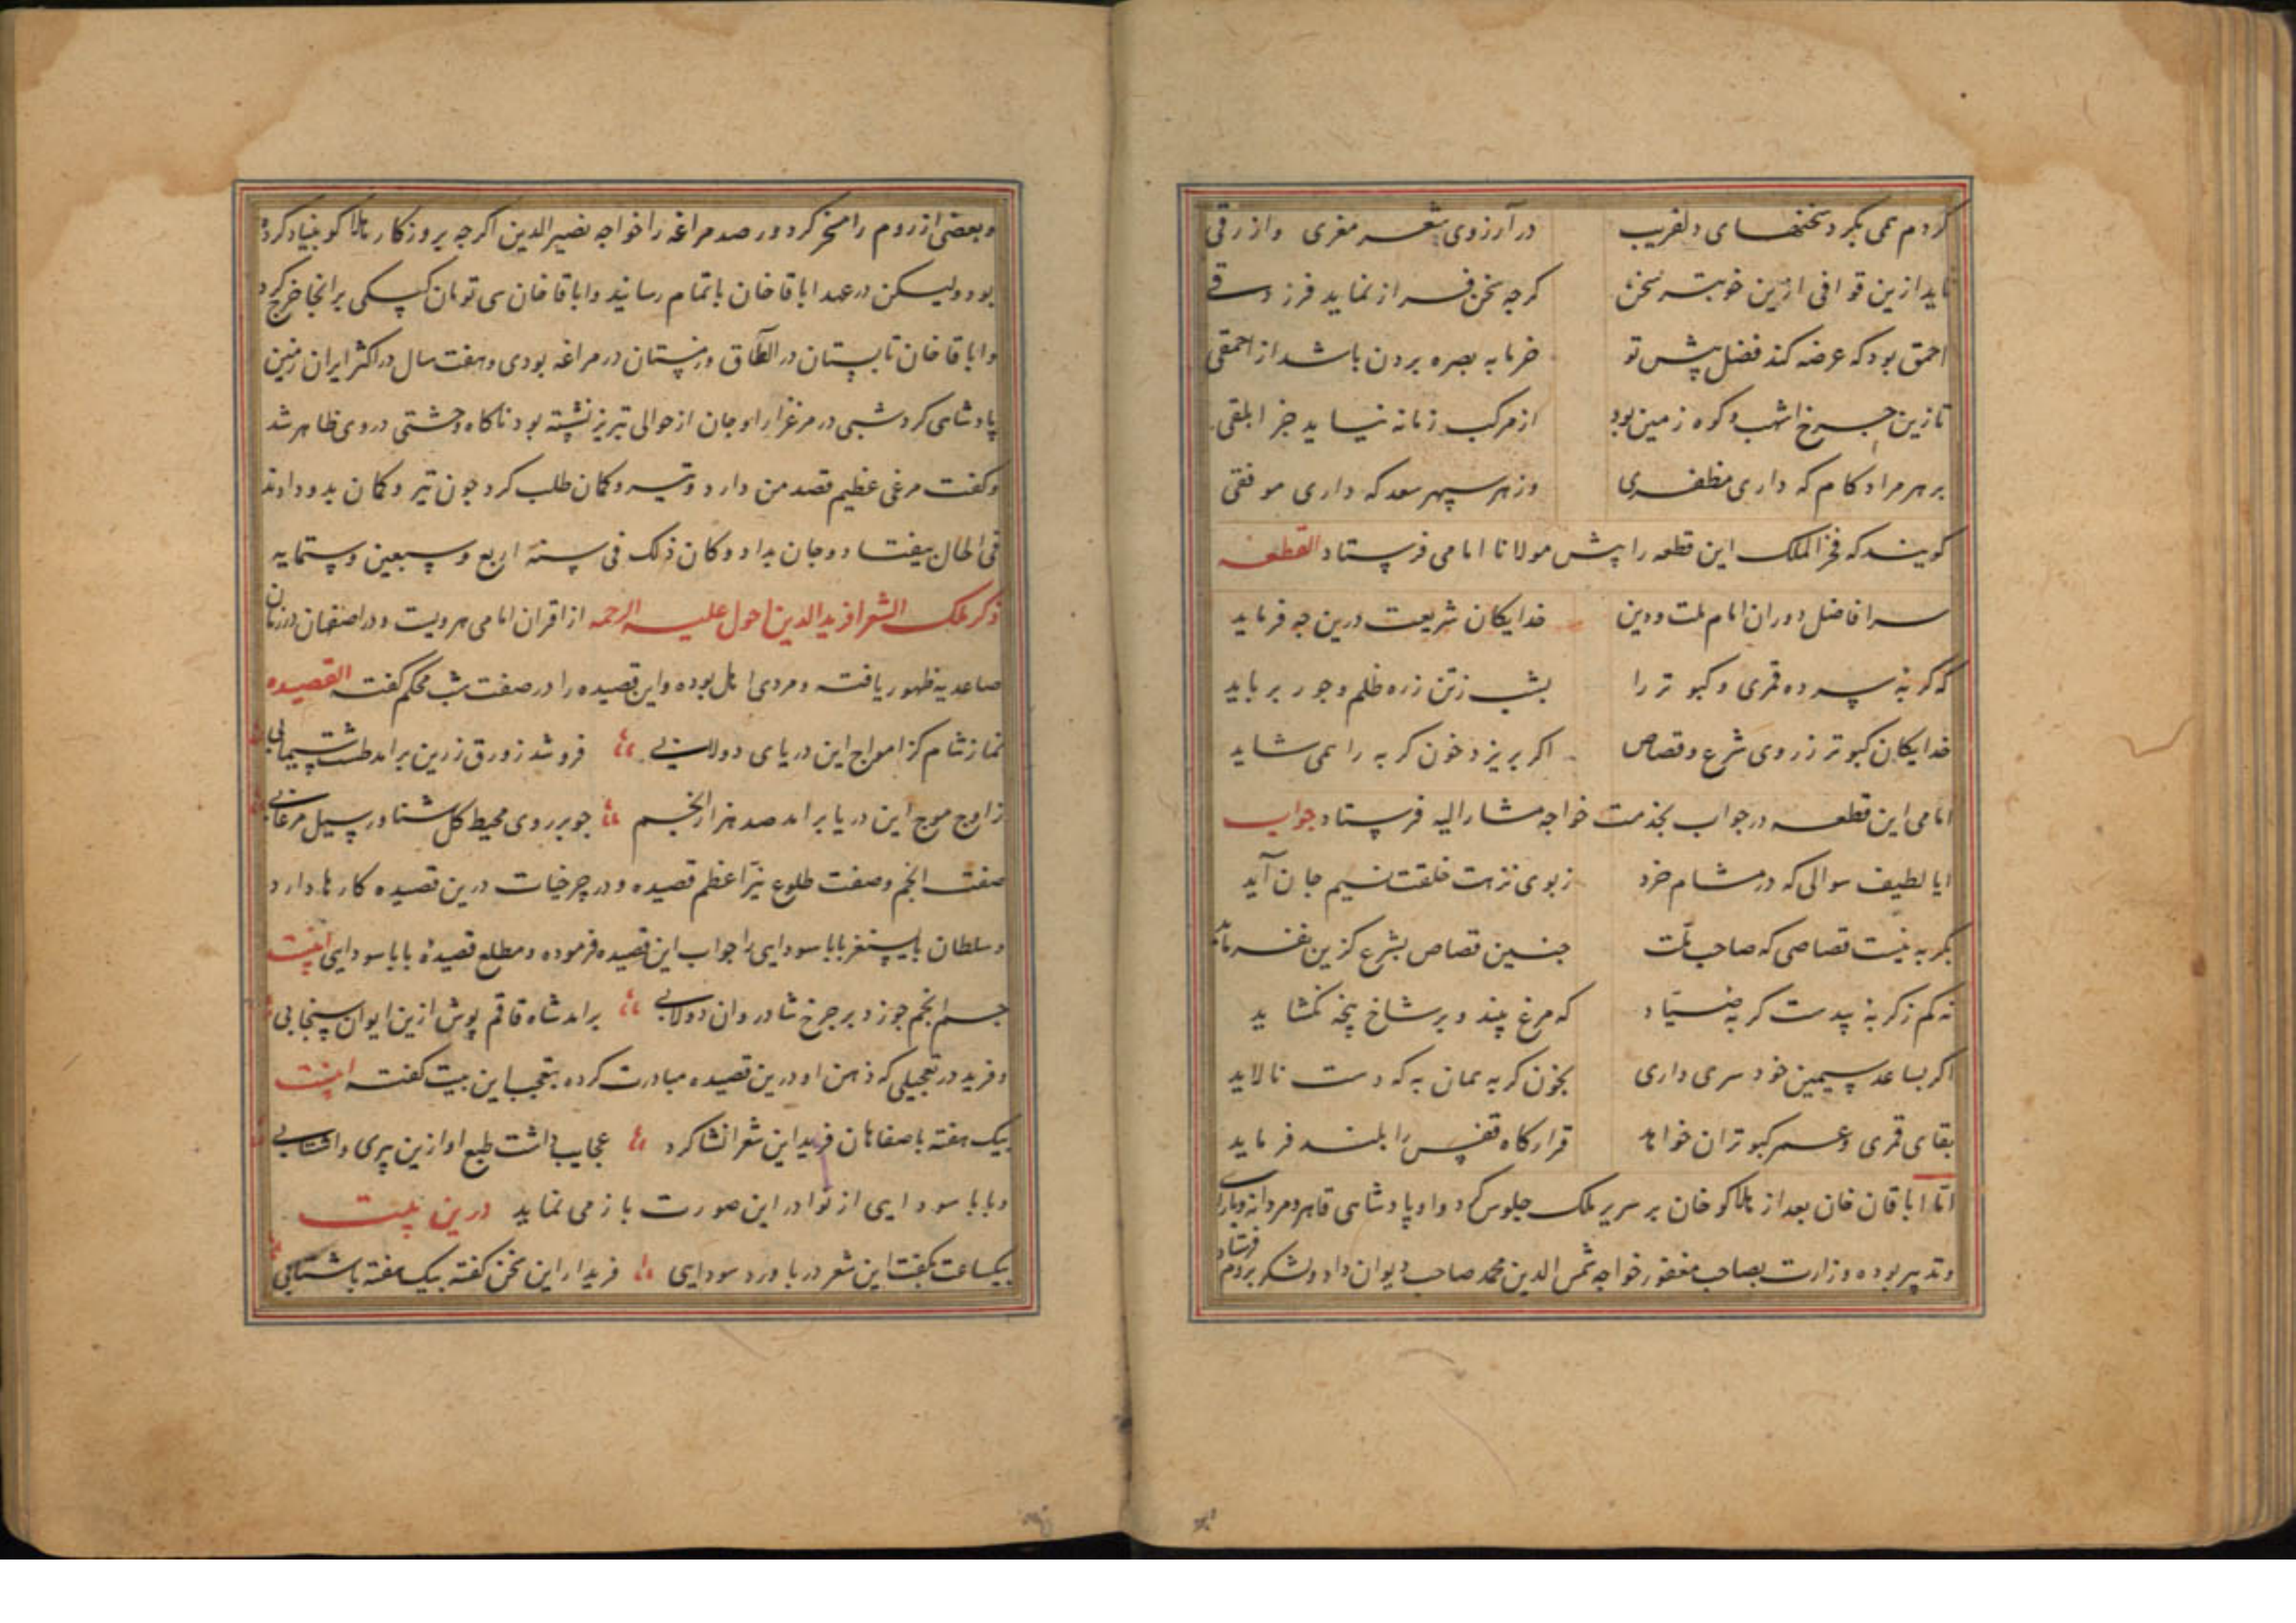 کردم همی بکرد سخنهای دلفریب در آرزوی شعر معزی و ازرقی
ناید ازین قوافی ازین خوبتر سخن کرچه سخن فراز نماید فرزدقی
احمق بود که عرضه کند فضل پیش تو خرما به بصره بردن باشد از احمقی
تا زین چرخ اشهب و کوه زمین بود از مرکب زمانه نیاید جز ابلقی
بر هر مراد و کام که داری مظفری وز هر سپهر سعد که داری موفقی
کویند که فخر الملک این قطعه را پیش مولانا امامی فرستاد القطعه
سر افاضل دوران امام ملت و دین خدایکان شریعت درین چه فرماید
که کربه سر ده قمری و کبوتر را بشب ز تن زره ظلم و جور برباید
خدایکان کبوتر ز روی شرع و قصاص اکر بریزد خون کربه را همی شاید
امامی این قطعه در جواب بخدمت خواجه مشار الیه فرستاد جواب
ایا لطیف سوالی که در مشام خرد ز بوی نزهت خلقت نسیم جان آید
بکربه نیست قصاصی که صاحب ملت چنین قصاص بشرع کزین نفرماید
نه کم ز کربه بیدست کربه صیاد که مرغ بیند و بر شاخ پنجه نکشاید
اکر بساعد سیمین خود سری داری بخون کربه همان به که دست نالاید
بقای قمری و عمر کبوتران خواهد قرارکاه قفس را بلند فرماید
اما اباقان خان بعد از هلاکو خان بر سریر ملک جلوس کرد و او پادشاهی قاهر و مردانه و با رای
و تدبیر بوده وزارت بصاحب مغفور خواجه شمس الدین محمد صاحب دیوان داد و لشکر بروم فرستاد
و بعضی از روم را مسخر کرد و رصد مراغه را خواجه نصیر الدین اکرچه بروزکار هلاکو بنیاد کرده
بود ولیکن در عهد اباقا خان باتمام رسانید و اباقا خان سی تومان کپکی بر آنجا خرج کرد
و اباقا خان تابستان در الطاق و زمستان در مراغه بودی و هفت سال در اکثر ایران زمین
پادشاهی کرد شبی در مرغزار اوجان از حوالی تبریز نشسته بود ناکاه وحشتی در وی ظاهر شد
و کفت مرغی عظیم قصد من دارد و تیر و کمان طلب کرد چون تیر و کمان بدو دادند
فی الحال بیفتاد و جان بداد و کان ذلک فی سنة اربع و سبعین و ستمایه
ذکر ملک الشعرا فرید الدین احول علیه الرحمه از اقران امامی هرویست و در اصفهان در زمان
صاعدیه ظهور یافته و مردی اهل بوده و این قصیده را در صفت شب محکم کفته القصیده
نماز شام کز امواج این دریای دولابی فرو شد زورق زرین برامد طشت سیمابی
ز اوج موج این دریا برامد صد هزار انجم چو بر روی محیط کل شناور سیل مرغابی
صفت انجم و صفت طلوع نیر اعظم قصیده و در چرخیات درین قصیده کارها دارد
و سلطان بایسنغر بابا سودایی را جواب این قصیده فرموده و مطلع قصیدهٔ بابا سودایی اینست
چسم انجم جوزد بر چرخ شادروان دولابی برامد شاه قاقم پوش ازین ایوان سنجابی
و فرید در تعجیلی که ذهن او درین قصیده مبادرت کرده بتعجب این بیت کفته اینست
بیک هفته باصفاهان فرید این شعر انشا کرد عجایب داشت طبع او ازین پیری و اشتابی
و بابا سودایی از نوادر این صورت باز می نماید درین بیت
بیکساعت بکفت این شعر در باورد سودایی فرید ار این سخن کفته بیک هفته باشتابی